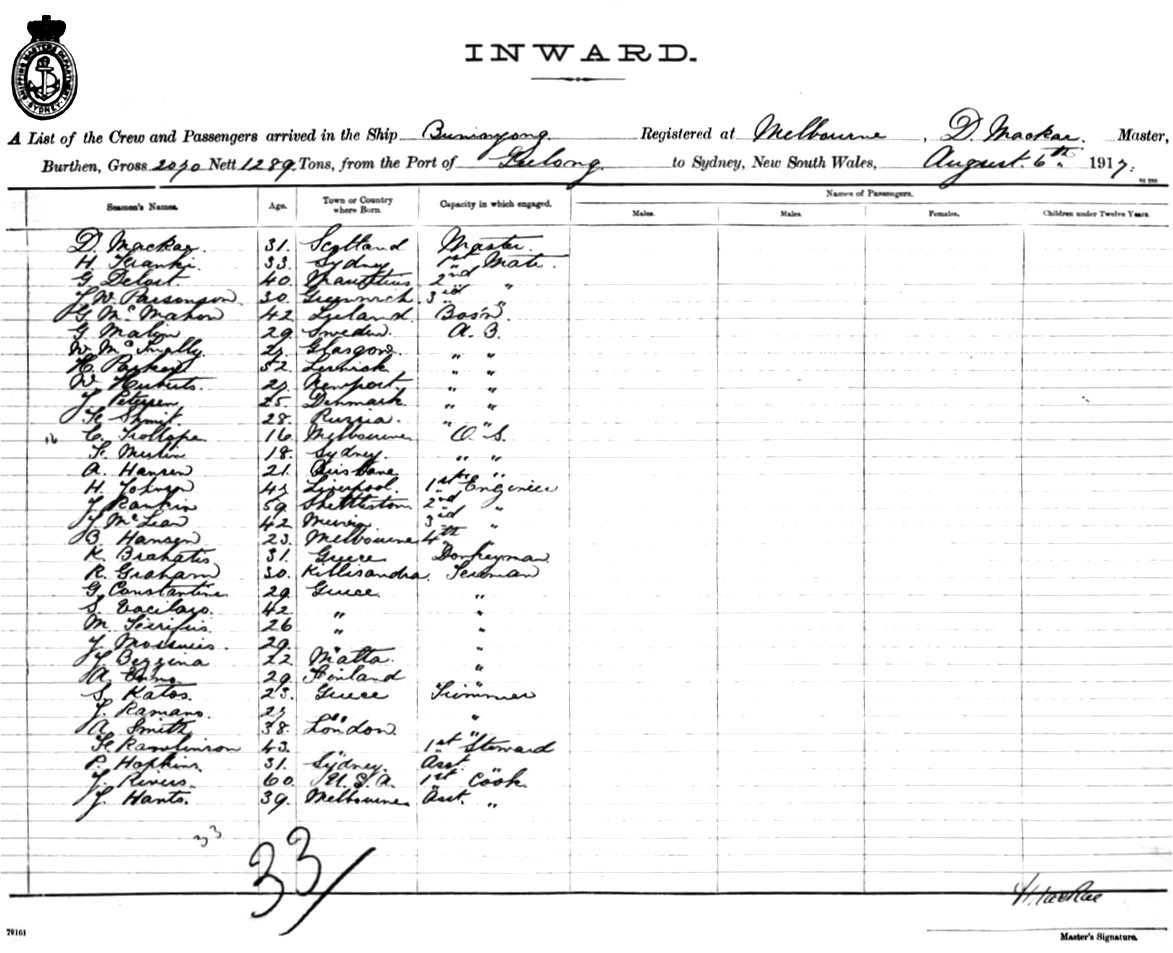 SHIPPING MASTER'S DEPARTMENT SYDNEY
INWARD.
A List of the Crew and Passengers arrived in the Ship Buninyong Registered at Melbourne, D. Mackae. Master,
Burthen, Gross 2070 Nett 1289 Tons, from the Port of Geelong to Sydney, New South Wales, August. 6th 1917.
Names of Passengers.
Seamen's Names. Age. Town or Country where Born. Capacity in which engaged. Males. Males. Females. Children under Twelve Years.
D. Mackae. 31. Scotland Master.
H. 33. Sydney 1st Mate.
G. 40. Mauritius 2nd "
J. W. Parsonson 30. Greenwich 3rd "
G. McMahon 42 Ireland. Bos'n.
G. 29 Sweden. A. B.
W. McInally 27. Glasgow. " "
H. Parker 52 Lerwick " "
W. 27. Newport. " "
J. Petersen 25. Denmark. " "
28. Russia. " "
16 C. Trollope 16. Melbourne O. S.
F. 18. Sydney. " "
A. Hansen 21. Brisbane "
H. Johnson 47. Liverpool. 1st Engineer
J. Rankin 59. Shettleston 2nd "
J. McLean 42 3rd "
B. Hansen 23. Melbourne 4th "
K. 31. Greece Donkeyman
R. Graham 30. Killisandra. Fireman
G. Constantine 29. Greece. "
S. 42. " "
M. 26 " "
J. 29. " "
J. Bezzina 22 Malta. "
A. 29. Finland "
S. Katos. 23. Greece Trimmer
J. Ramano. 27. " "
A. Smith 38. London. "
Rawlinson 43. " 1st Steward
P. Hopkins 31. Sydney. Asst. "
J. Rivers. 60. U. S. A. 1st Cook.
J. Hants. 39. Melbourne Asst. "
33
33/
Master's Signature.
79161